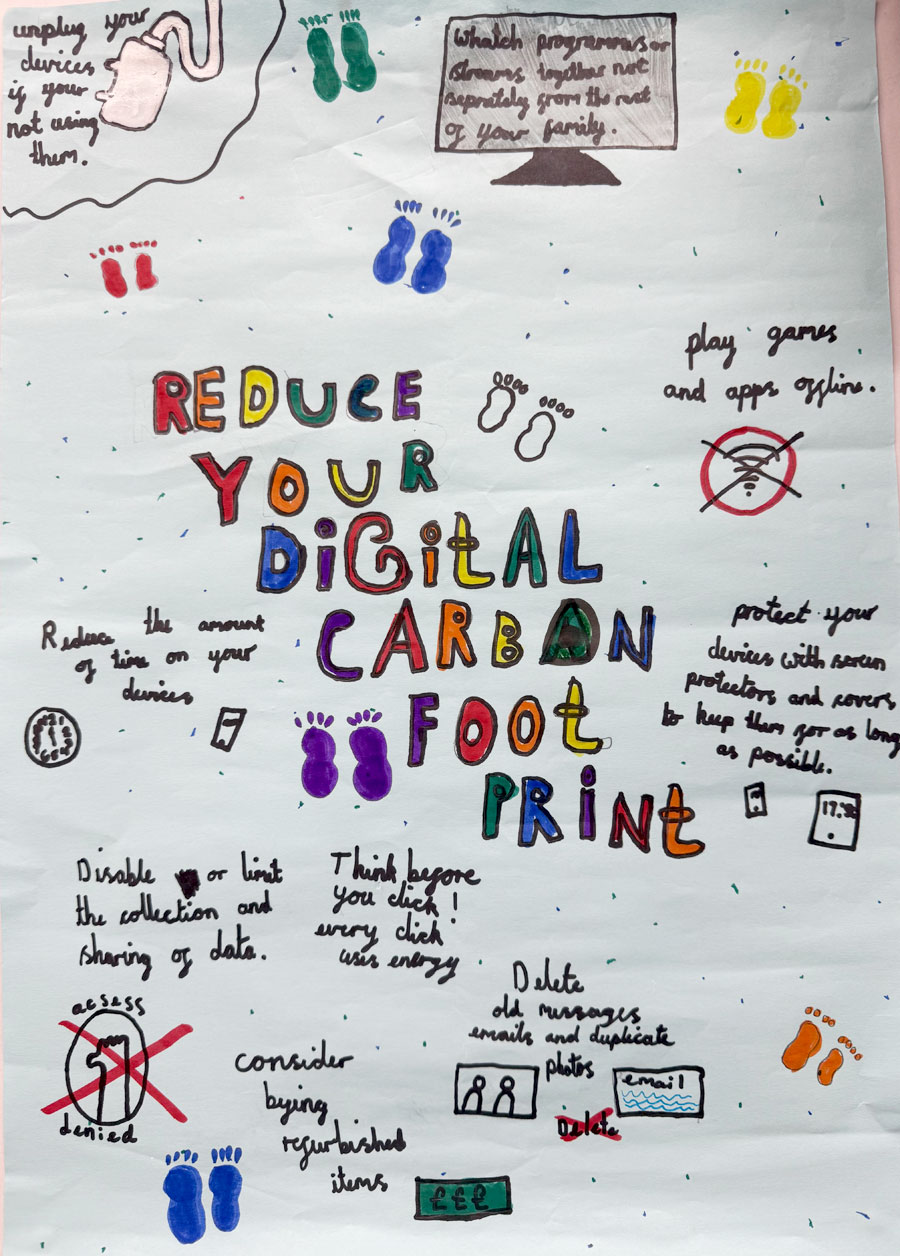 unplug your
devices
if your
not using
them.
Whatch programmes or
streams together not
seprately from the rest
of your family.
play games
and apps offline.
REDUCE
YOUR
DiGitAL
CARBON
FOOt
PRiNt
Reduce the amount
of time on your
devices
protect your
devices with screen
protectors and covers
to keep them for as long
as possible.
Disable or limit
the collection and
sharing of data.
Think before
you click!
every click
uses energy
Delete
old messages
emails and duplicate
photos
email
Delete
acsess
denied
consider
bying
refurbished
items
£££